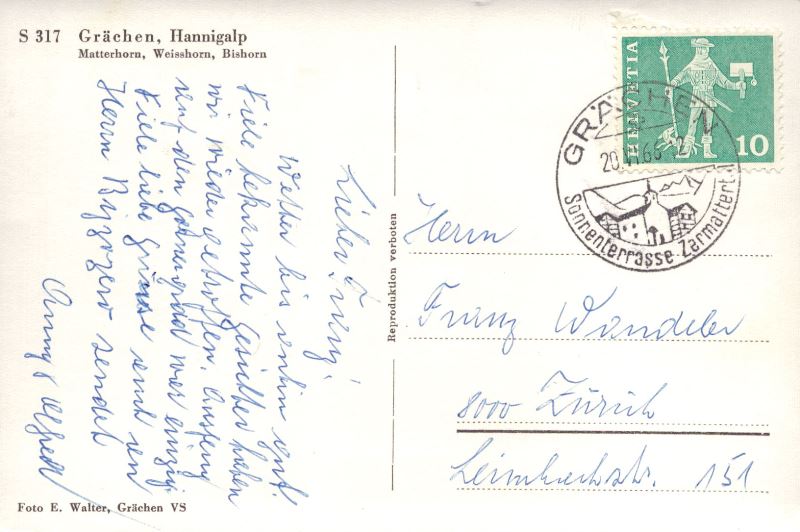 S 317 Grächen, Hannigalp
Matterhorn, Weisshorn, Bishorn
Lieber Franz!
Wetter bis anhin gut.
Viele bekannte Gesichter haben
wir wieder getroffen. Ausflug
auf den Gornergrat war einzig.
Viele liebe Grüsse auch an
Herrn sendet
Anny & Alfred
Foto E. Walter, Grächen VS
Reproduktion verboten
HELVETIA
10
GRÄCHEN
20.VI.66-12
Sonnenterrasse Zermattertal
Herrn
Franz Wandeler
8000 Zürich
Leimbachstr. 151